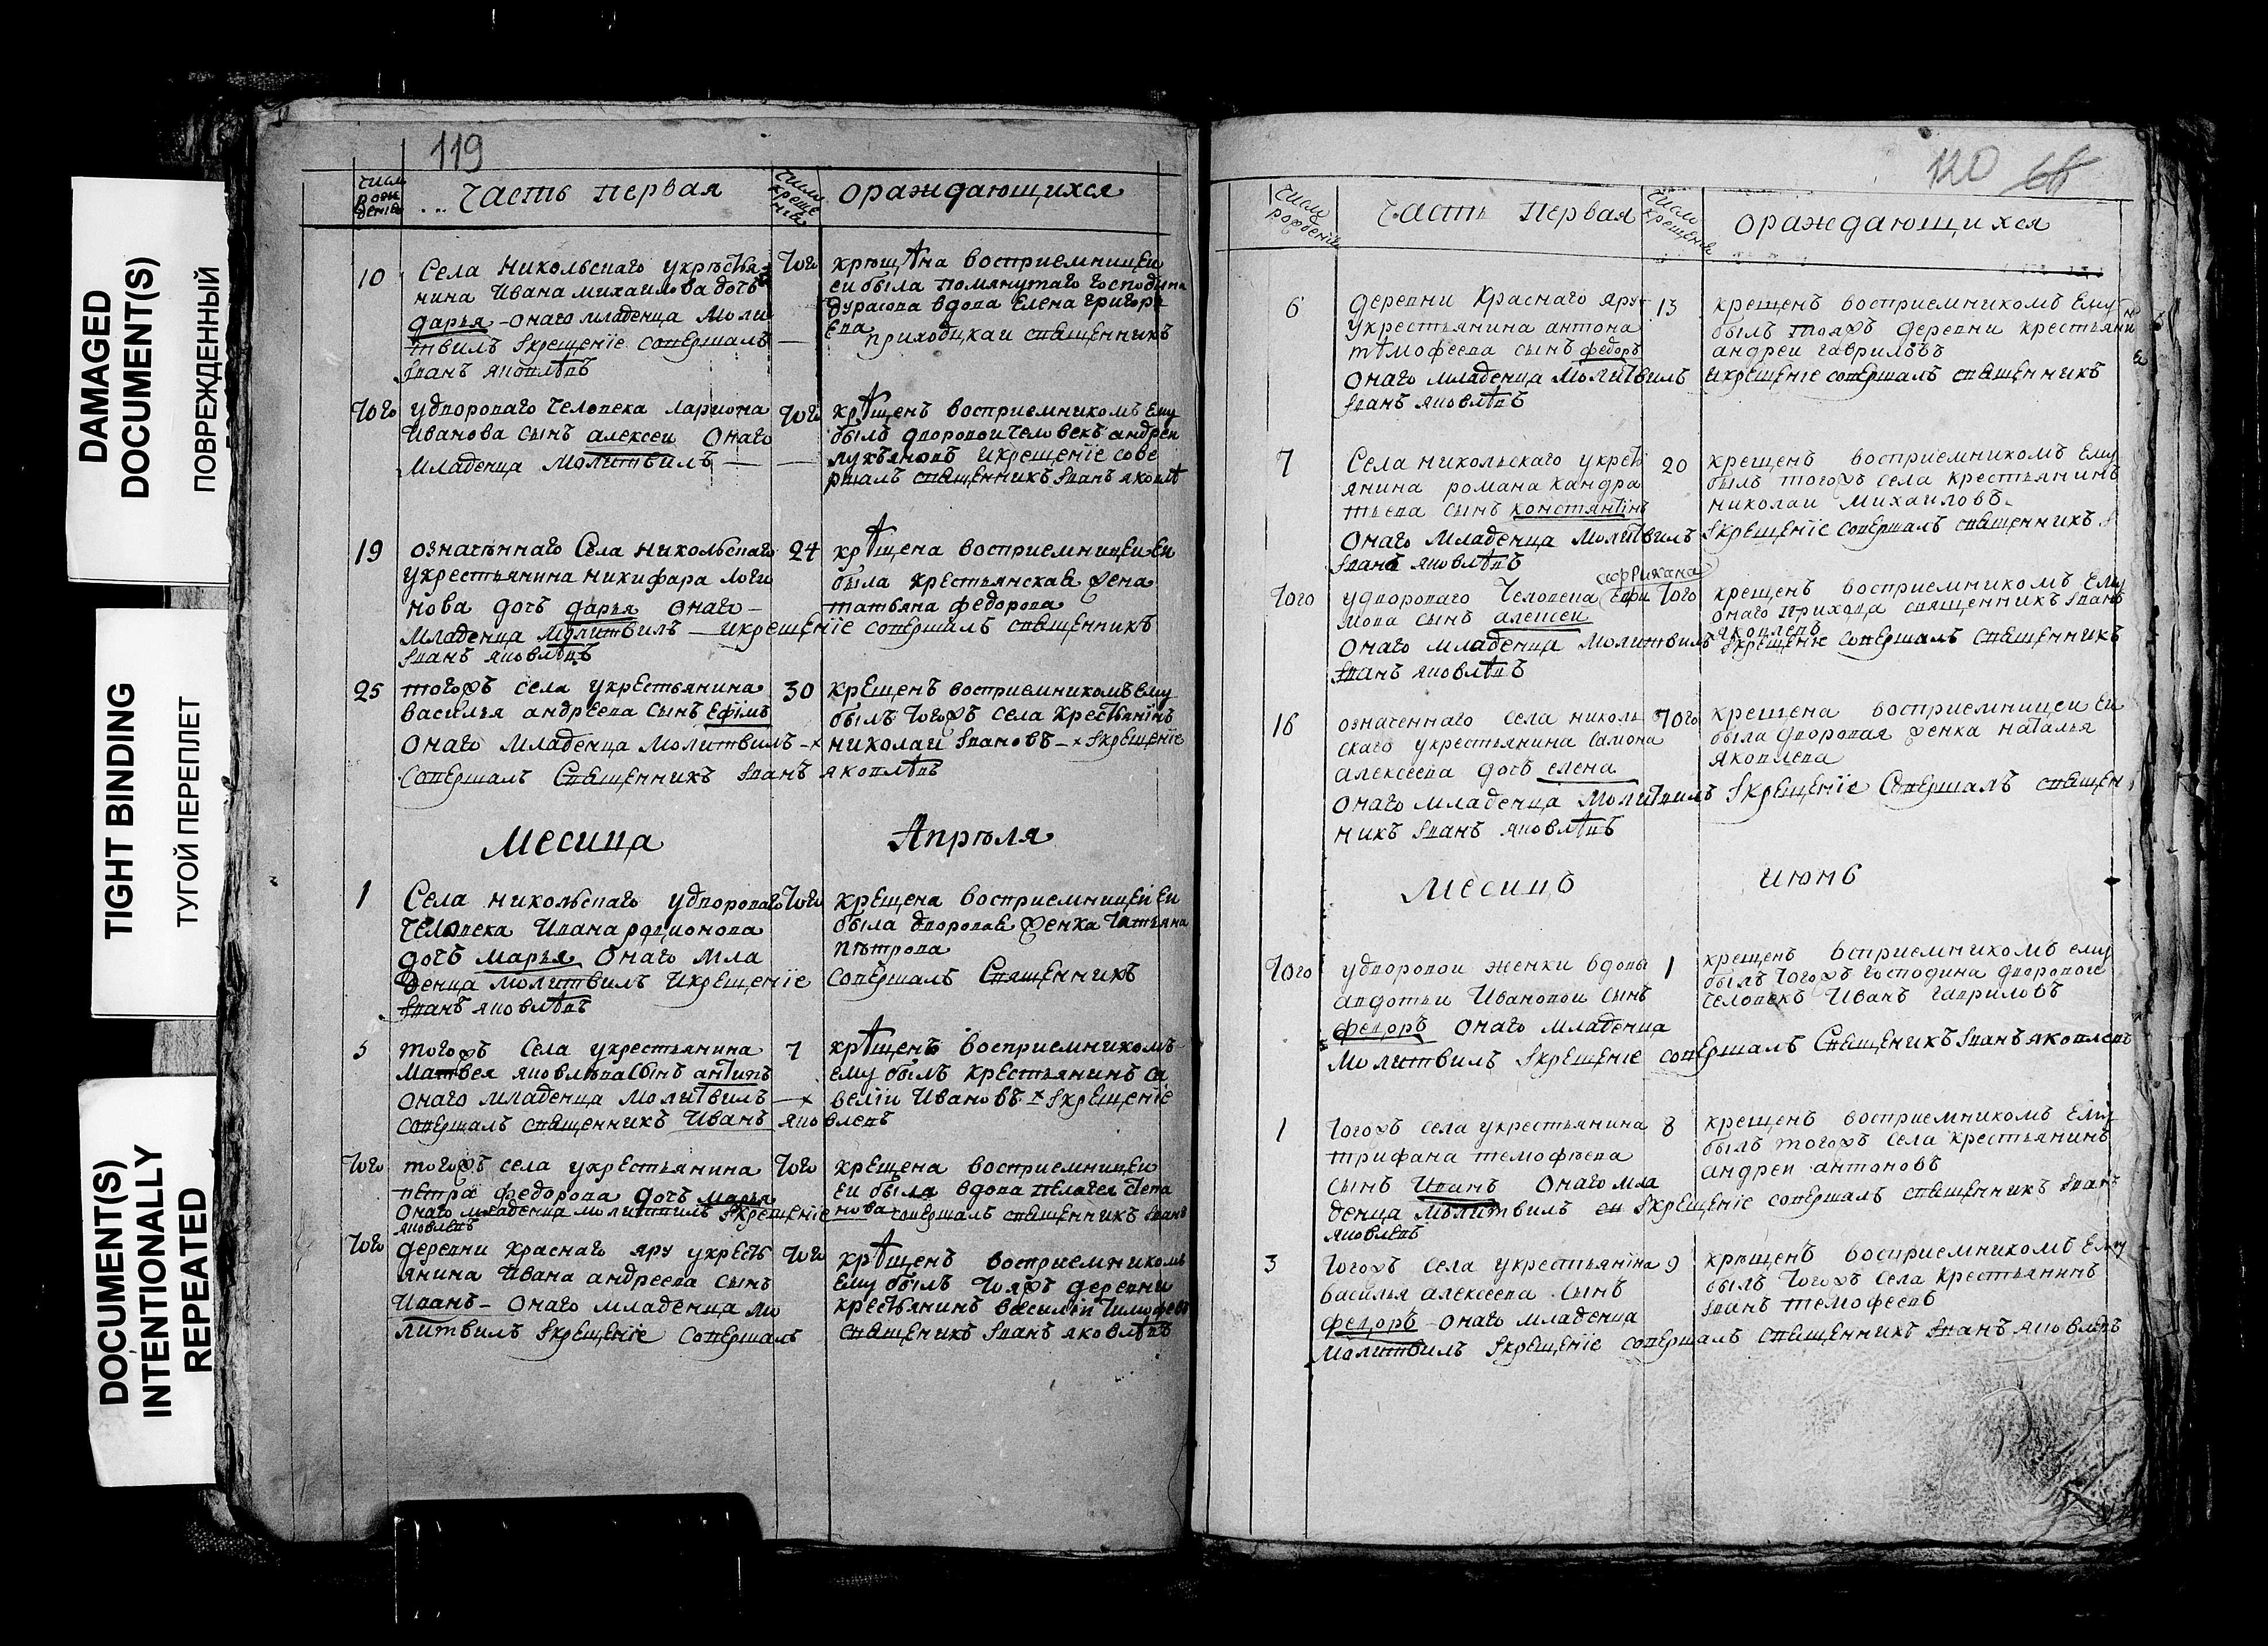 DAMAGED
DOCUMENT(S)
ПОВРЕЖДЕННЫЙ
TIGHT BINDING
ТУГОЙ ПЕРЕПЛЕТ
DOCUMENT(S)
INTENTIONALLY
REPEATED
119
число рож дения
Часть первая
число креще ния
ораждающихся
10
Села Никольскаго укрестья
нина Ивана михаилова дочь
дарья онаго младенца моли
твилъ Iкрещенїе совершалъ
Iванъ яковлѣвъ
того
крѣщѣна восприемницеи
еи была помянутаго господина
дурасова вдова Елена григорь
ева
приходцкаи священникъ
того
удворового человека лариона
Иванова сынъ алексеи онаго
младенца молитвилъ
того
крѣщенъ восприемникомъ Ему
былъ дворовои человекъ андреи
лукъяновъ икрещенїе сове
ршалъ священникъ Iванъ яковлѣ
19
означеннаго Села никольскаго
укрестьянина никифара логи
нова дочь дарья онаго
младенца молитвилъ икрещенїе совершалъ священникъ
Iванъ яковлѣвъ
24
крѣщена восприемницеи Еи
была крестьянская женка
татьяна федорова
25
тогожъ села укрестьянина
василья андреева сынъ Ефїмъ
онаго младенца молитвилъ
совершалъ Священникъ Iванъ яковлѣвъ
30
крещенъ восприемникомъ Ему
былъ тогожъ села крестьянїнъ
николаи Iвановъ Iкрещенїе
Месица Апрѣля
1
Села никольскаго удворового
человека Ивана родионова
дочь марья онаго мла
денца молитвилъ Икрещенїе
Iванъ яковлѣвъ
того
крещена восприемницеи Еи
была дворовая женка татьяна
пѣтрова
совершалъ Священникъ
5
тогожъ Села укрестьянина
матвея яковлева сынъ антипъ
онаго младенца молитвилъ
совершалъ священникъ Иванъ яковлевъ
7
крѣщенъ восприемникомъ
ему былъ крестьянинъ са
велїи Ивановъ Iкрещенїе
того
тогожъ села укрестьянина
петра федорова дочь марья
онаго младенца молитвилъ Iкрещенїе совершалъ священникъ Iванъ
яковлевъ
того
крещена восприемницеи
еи была вдова пелагея степа
нова
того
деревни краснаго яру укресть
янина Ивана андреева сынъ
Иванъ онаго младенца мо
литвилъ Iкрещенїе совершалъ
того
крѣщенъ восприемникомъ
ему былъ тояжъ деревни
крестьянинъ василїи тимофеевъ
священикъ Iванъ яковлѣвъ
120
число рождения
Часть первая
число крещения
ораждающихся
6
деревни Краснаго яру
укрестьянина антона
тѣмофеева сынъ федоръ
онаго младенца молитвилъ икрещенїе совершалъ священникъ
Iванъ яковлѣвъ
13
крещенъ восприемникомъ ему
былъ тояжъ деревни крестьяни
андреи гавриловъ
7
Села никольскаго укресть
янина романа кандра
тьева сынъ констянтїнъ
онаго младенца молитвилъ Iкрещенїе совершалъ священникъ
Iванъ яковлѣвъ
20
крещенъ восприемникомъ ему
былъ тогожъ села крестьянинъ
николаи михаиловъ
того
африкана
удворового человека Ефи
мова сынъ алексеи
онаго младенца молитвилъ Iкрещенїе совершалъ священникъ
Iванъ яковлѣвъ
того
крещенъ восприемникомъ Ему
онаго прихода священникъ Iванъ
яковлевъ
16
означеннаго села николь
скаго укрестьянина самона
алексеева дочь елена
онаго младенца молитвилъ Iкрещенїе Совершалъ священ
никъ Iванъ яковлѣвъ
того
крещена восприемницеи Еи
была дворовая женка наталья
яковлева
месицъ июнь
того
удворовои женки вдовы
авдотьи Ивановои сынъ
федоръ онаго младенца
молитвилъ Iкрещенїе совершалъ Священикъ Iванъ яковлевъ
1
крещенъ всприемникомъ ему
былъ тогожъ господина дворового
человекъ Иванъ гавриловъ
1
тогожъ села укрестьянина
трифана темофѣева
сынъ Иванъ онаго мла
денца молитвилъ Iкрещенїе совершалъ священникъ Iванъ
яковлевъ
8
крещенъ восприемникомъ Ему
былъ тогожъ села крестьянинъ
андреи антоновъ
3
тогожъ села укрестьянїна
василья алексеева сынъ
федоръ онаго младенца
молитвилъ Iкрещенїе совершалъ священникъ Iванъ яковлевъ
9
крѣщенъ восприемникомъ Ему
былъ тогожъ села крестьянинъ
Iванъ темофеевъ